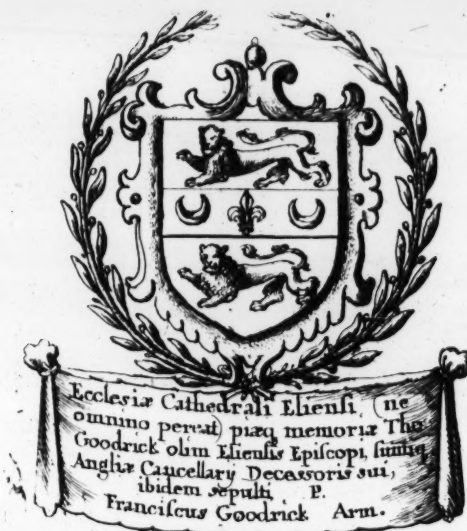 Ecclesiæ Cathedrali Eliensi, (ne
omnino pereat) piæq memoriæ Tho
Goodrick olim Eliensis Episcopi, simulq
Angliæ Cancellarÿ Decessoris sui,
ibidem sepulti P.
Franciscus Goodrick Arm.